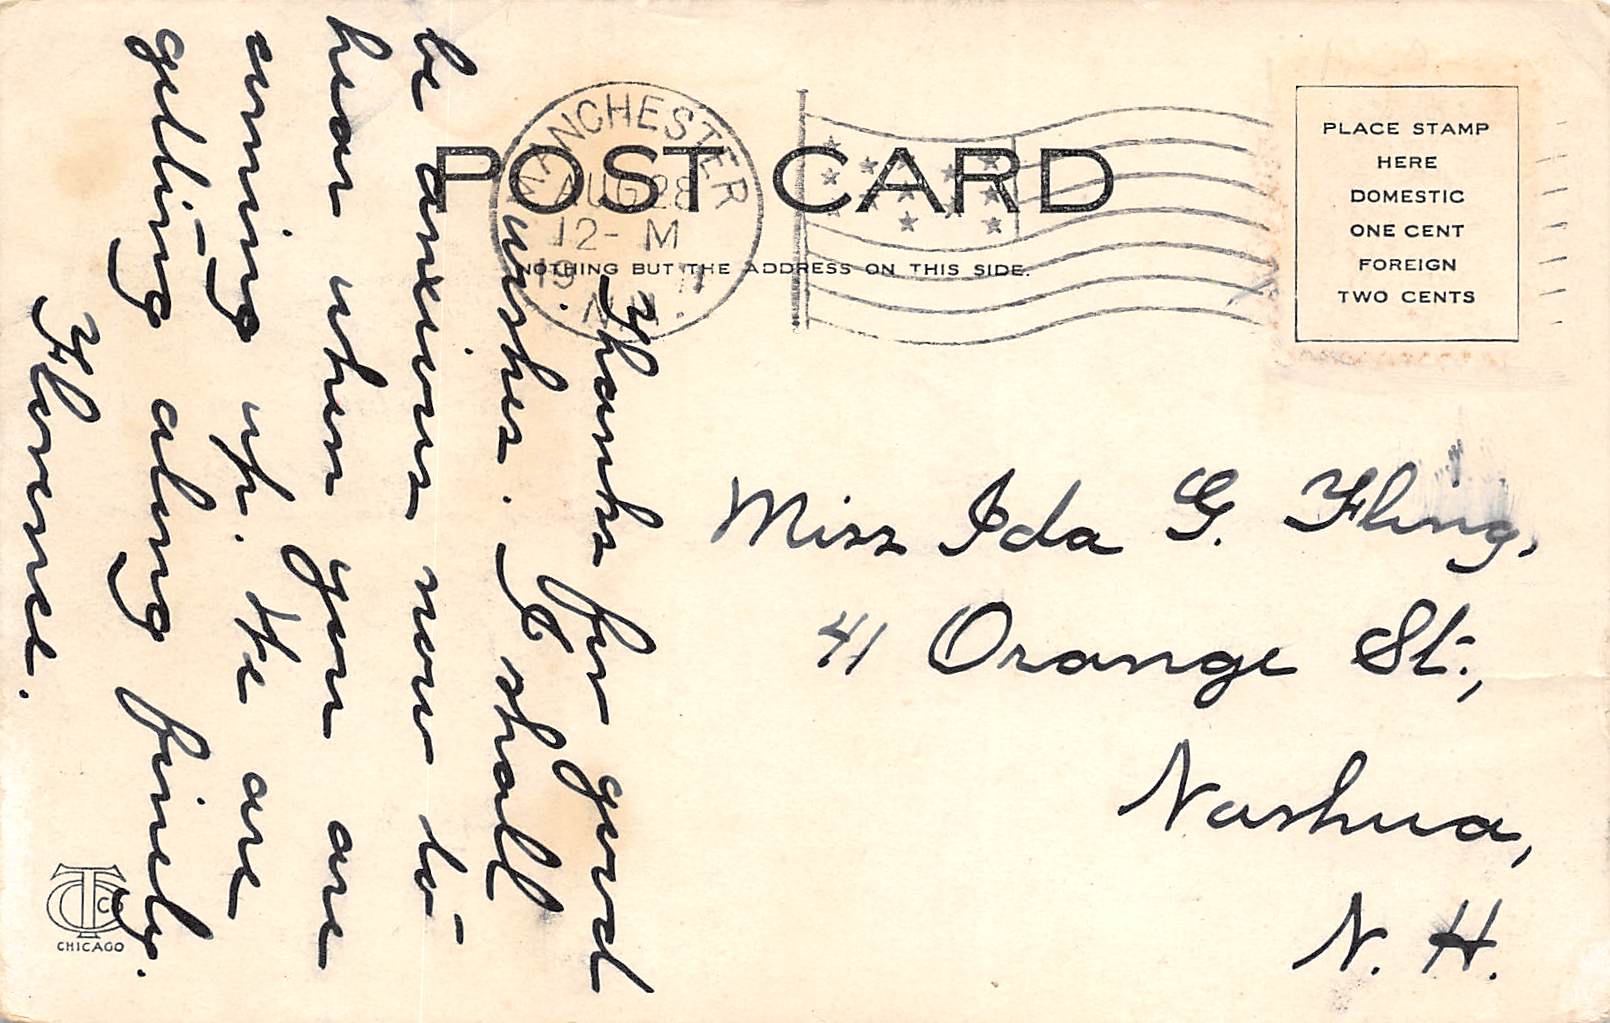 POST CARD
NOTHING BUT THE ADDRESS ON THIS SIDE.
MANCHESTER
AUG 28
12- M
19 11
N.H.
PLACE STAMP
HERE
DOMESTIC
ONE CENT
FOREIGN
TWO CENTS
Thanks for good
wishes. I shall
be anxious now to
hear when you are
coming up. We are
getting along finely.
Florence.
Miss Ida G. Fling,
41 Orange St.,
Nashua,
N. H.
CT Co
CHICAGO